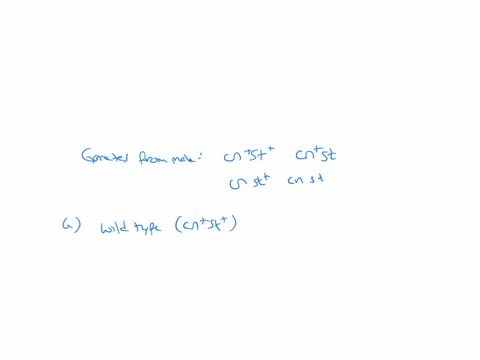 Gametes from male: cn⁺st⁺ cn⁺st
cn st⁺ cn st
a) Wild type (cn⁺st⁺)